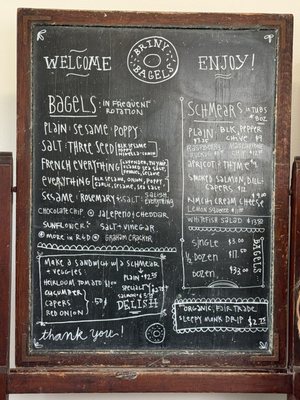 WELCOME
BRINY
BAGELS
ENJOY!
BAGELS: IN FREQUENT
ROTATION
PLAIN: SESAME: POPPY
SALT: THREE SEED
FRENCH EVERYTHING
EVERYTHING
SESAME: ROSEMARY: & SALT:
CHOCOLATE CHIP @ JALEPENO & CHEDDAR
SUNFLOWER: SALT + VINEGAR
@ MORE IN R&D @ GRAHAM CRACKER
MAKE A SANDWICH W/ A SCHMEAR
+ VEGGIES:
HEIRLOOM TOMATO
CUCUMBER
CAPERS
RED ONION
.50¢
PLAIN +
SPECIALTY
SALMON
DELISH
thank you!
SCHMEARS IN TUBS
8 OZ.
PLAIN
BLK. PEPPER
CHIVE
APRICOT & THYME
SMOKED SALMON, DILL,
CAPERS
KIMCHI CREAM CHEESE
WHITEFISH SALAD
SINGLE $3.00
1/2 DOZEN $17.50
DOZEN $33.00
BAGELS
ORGANIC, FAIR TRADE
SLEEPY MONK DRIP